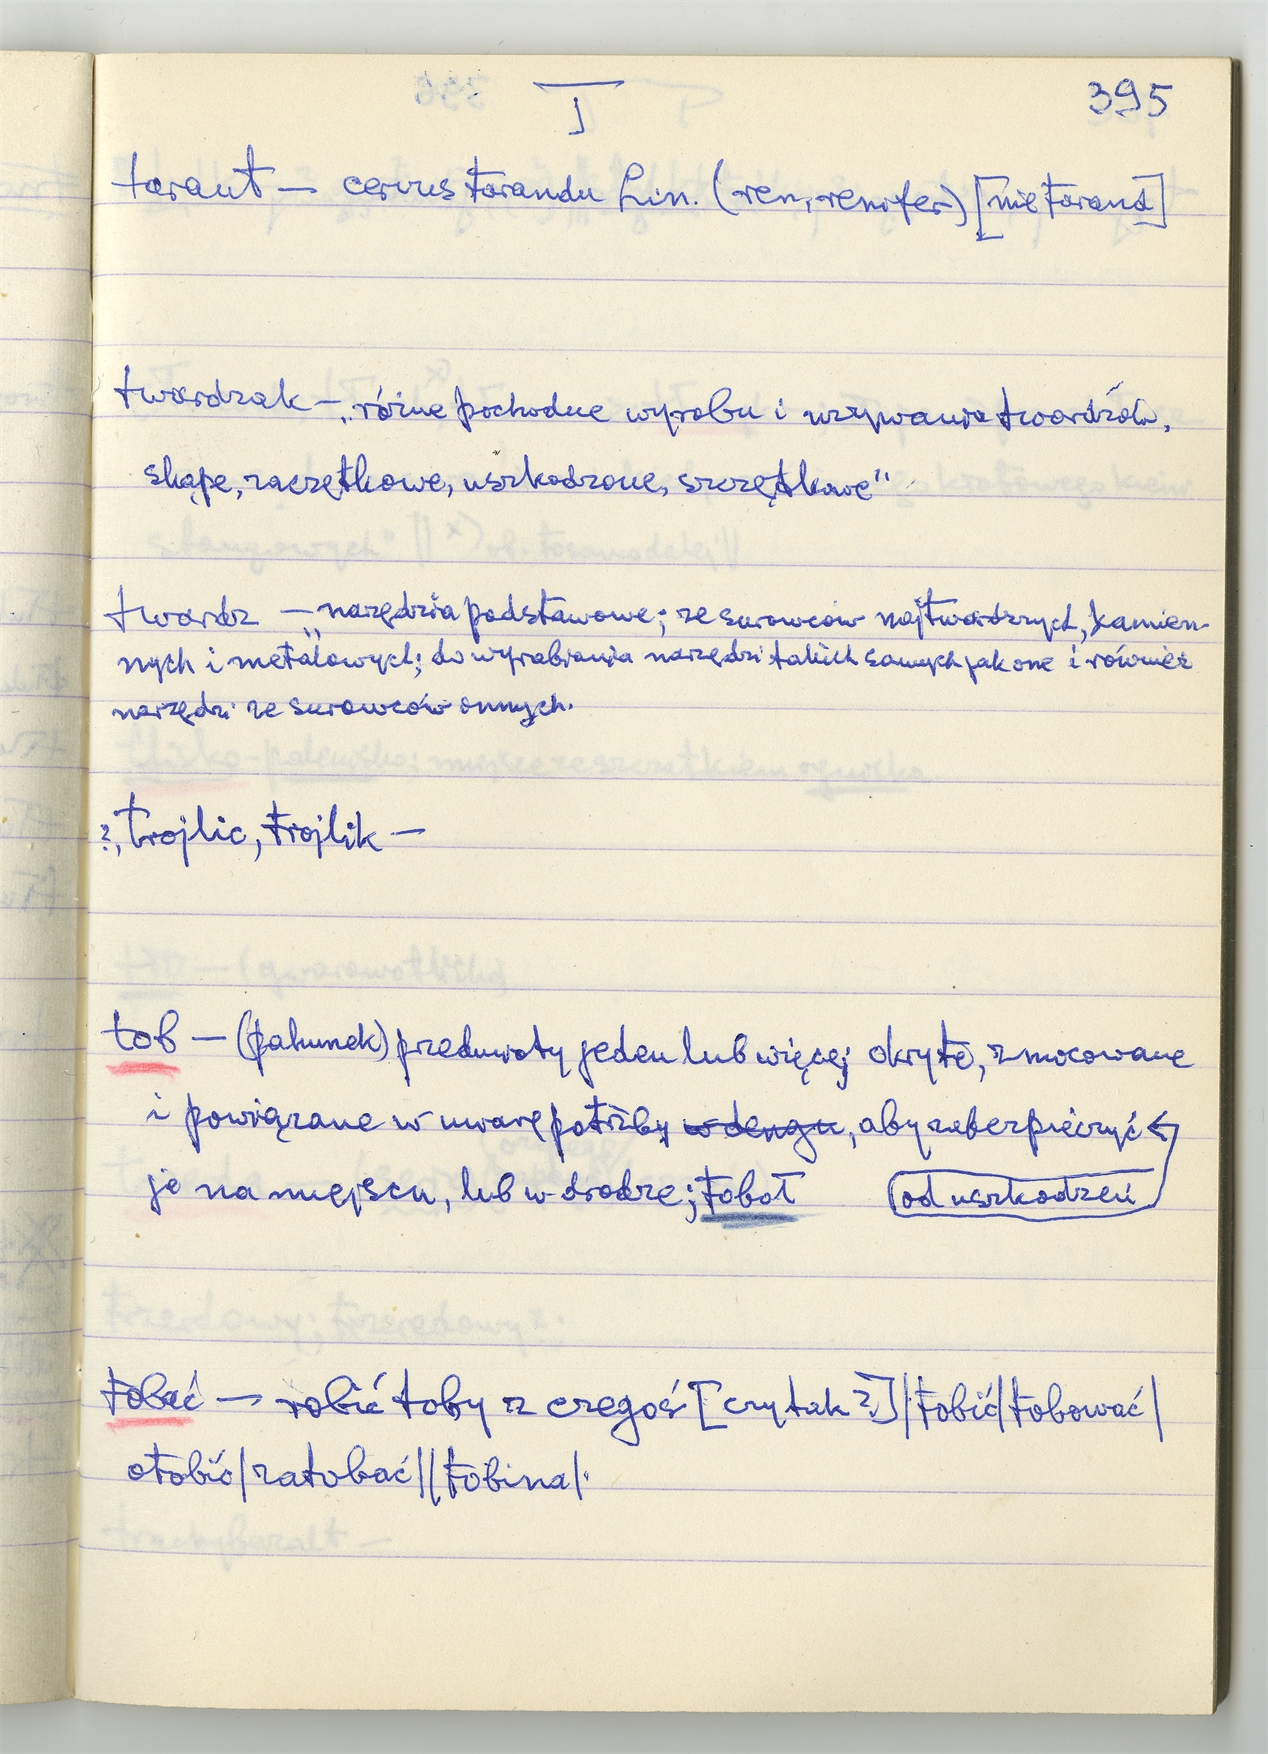 T 395
tarant — cervus tarandu Lin. (ren, renifer) [nie tarand]
twardzak — „różne pochodne wyrobu i używania twardźów,
skąpe, zaczętkowe, uszkodzone, szczętkowe"
twardz — „narzędzia podstawowe; ze surowców najtwardszych, kamien-
nych i metalowych; do wyrabiania narzędzi takich samych jak one i również
narzędzi ze surowców onnych.
?, trojlic, trojlik —
tob — (pakunek) przedmioty jeden lub więcej okryte, zmocowane
i powiązane w miarę potrzeby w dengu, aby zabezpieczyć
je na miejscu, lub w drodze; toboł od uszkodzeń
tobać — robić toby z czegoś [czy tak?] | tobić | tobować |
otobić | zatobać || tobina |.